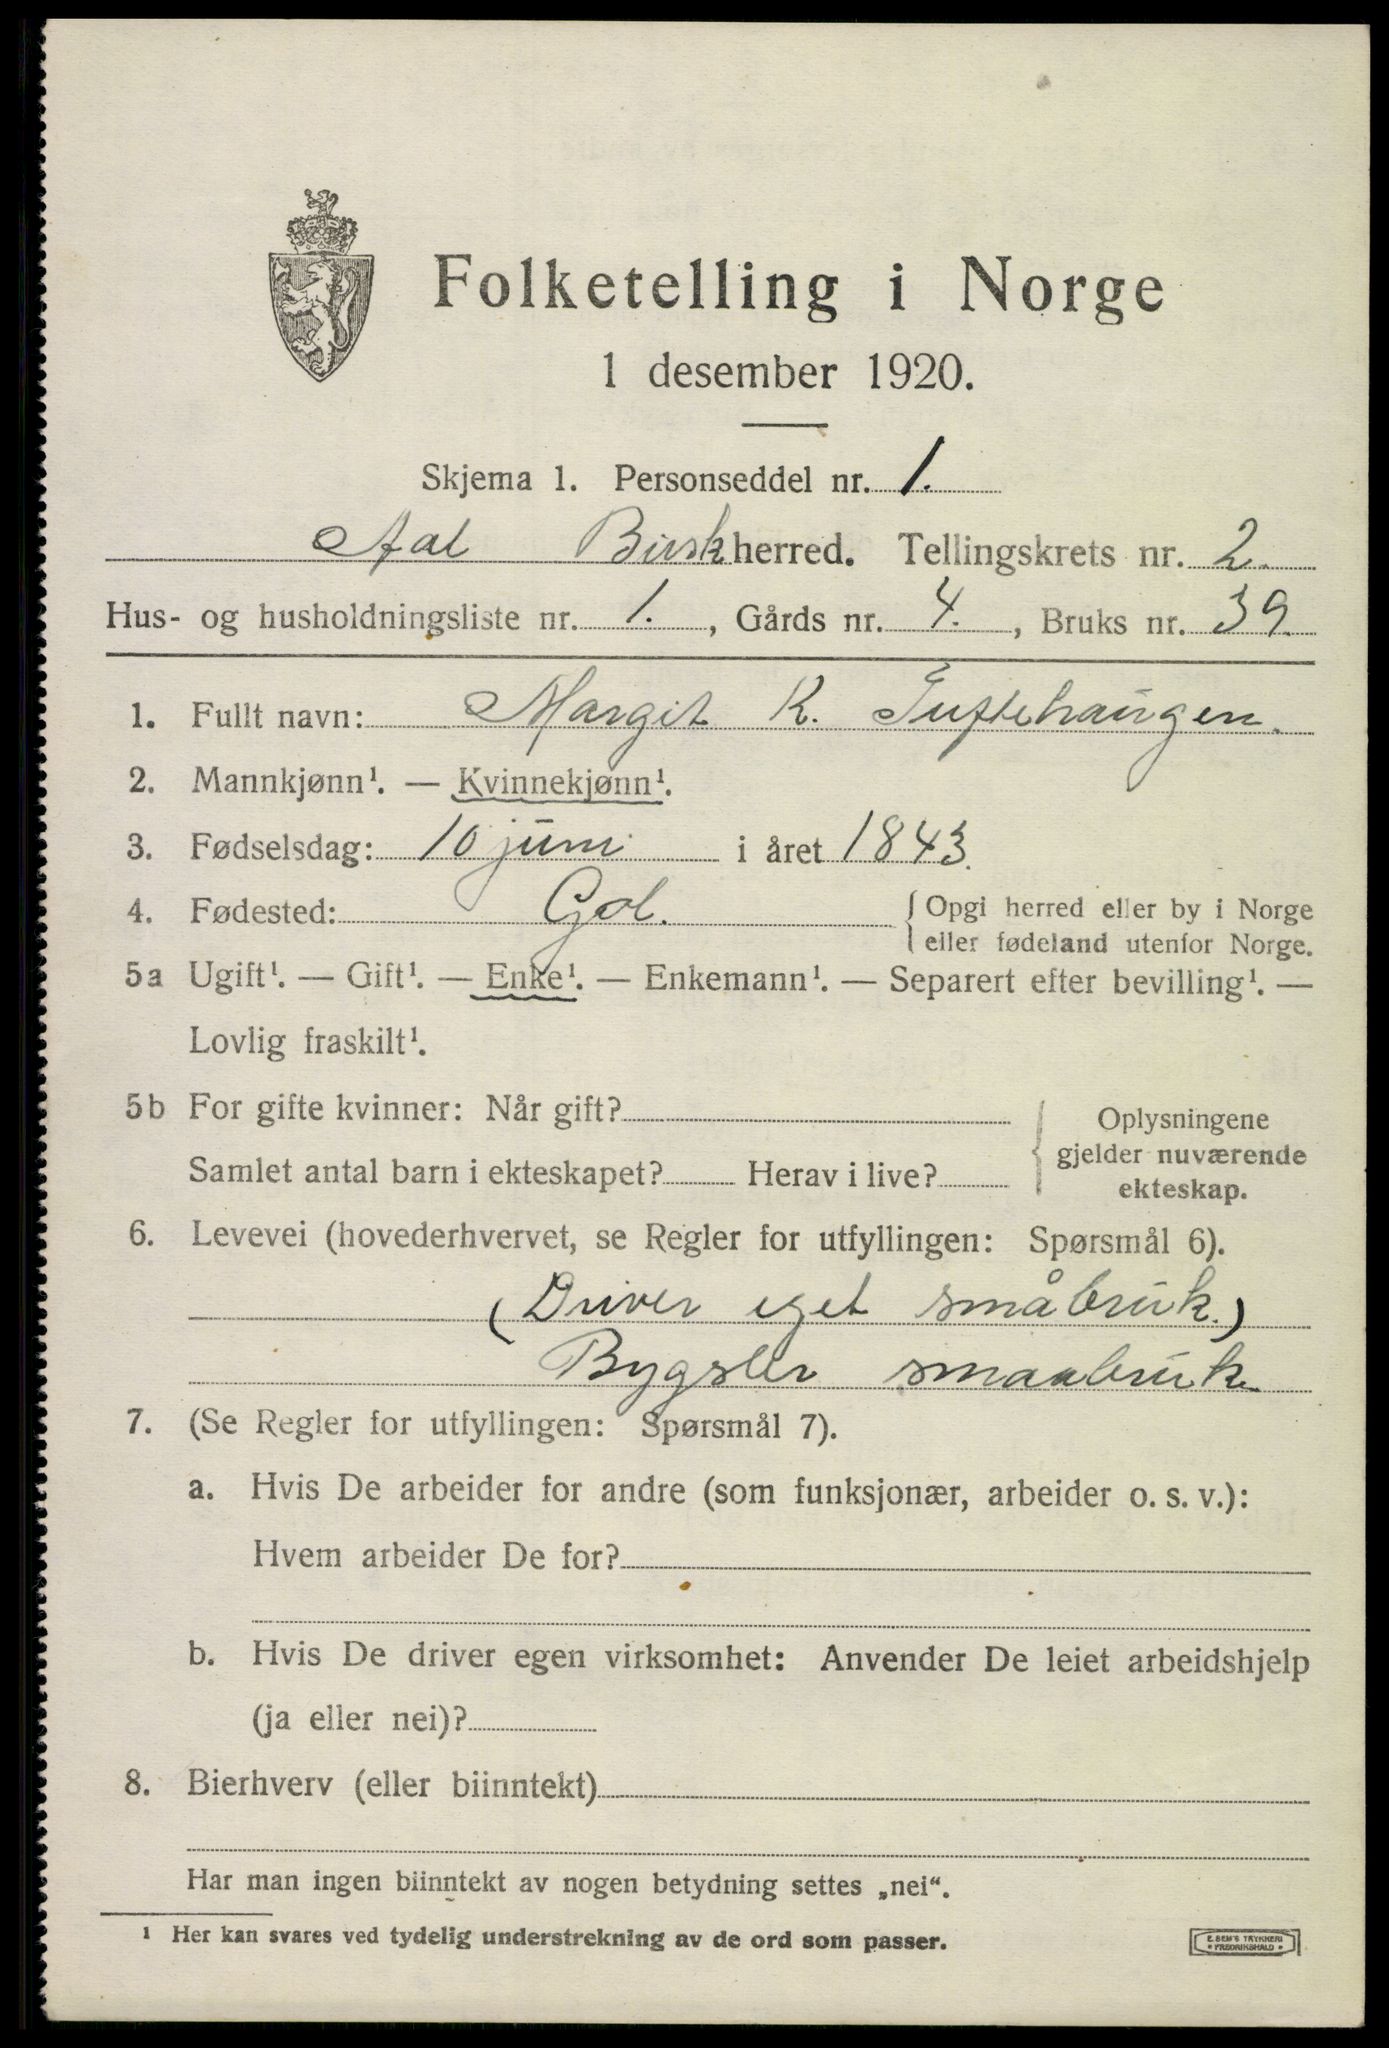 Folketelling i Norge
1 desember 1920.
Skjema 1. Personseddel nr. 1.
Aal Buskherred. Tellingskrets nr. 2.
Hus- og husholdningsliste nr. 1., Gårds nr. 4., Bruks nr. 39.
1. Fullt navn: Margit K. Tuftehaugen.
2. Mannkjønn¹. — Kvinnekjønn¹.
3. Fødselsdag: 10 juni i året 1843.
4. Fødested: Gol. { Opgi herred eller by i Norge
eller fødeland utenfor Norge.
5a Ugift¹. — Gift¹. — Enke¹. — Enkemann¹. — Separert efter bevilling¹. —
Lovlig fraskilt¹.
5b For gifte kvinner: Når gift?
Samlet antal barn i ekteskapet? Herav i live?
Oplysningene
gjelder nuværende
ekteskap.
6. Levevei (hovederhvervet, se Regler for utfyllingen: Spørsmål 6).
(Driver eget småbruk.)
Bygsler smaabruk.
7. (Se Regler for utfyllingen: Spørsmål 7).
a. Hvis De arbeider for andre (som funksjonær, arbeider o. s. v.):
Hvem arbeider De for?
b. Hvis De driver egen virksomhet: Anvender De leiet arbeidshjelp
(ja eller nei)?
8. Bierhverv (eller biinntekt)
Har man ingen biinntekt av nogen betydning settes „nei“.
¹ Her kan svares ved tydelig understrekning av de ord som passer.
E. SEM'S TRYKKERI
• FREDRIKSHALD •